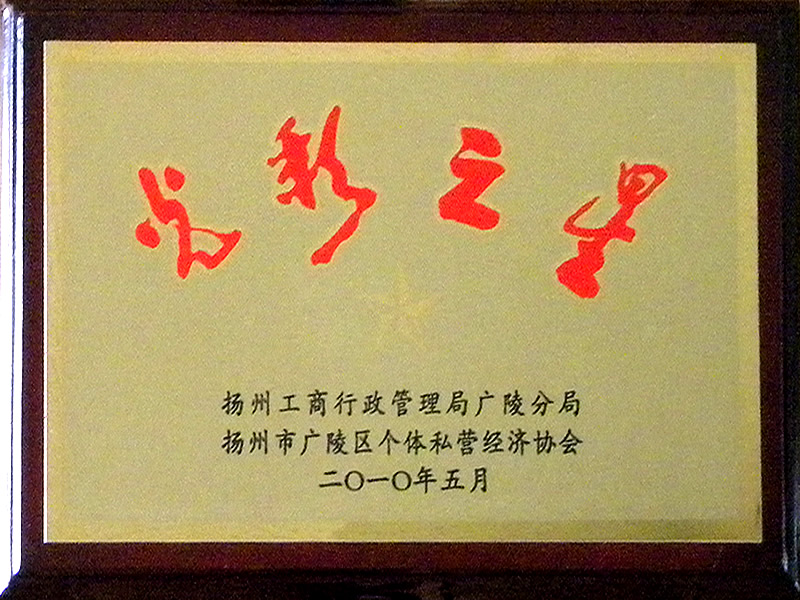 光彩之星
扬州工商行政管理局广陵分局
扬州市广陵区个体私营经济协会
二〇一〇年五月